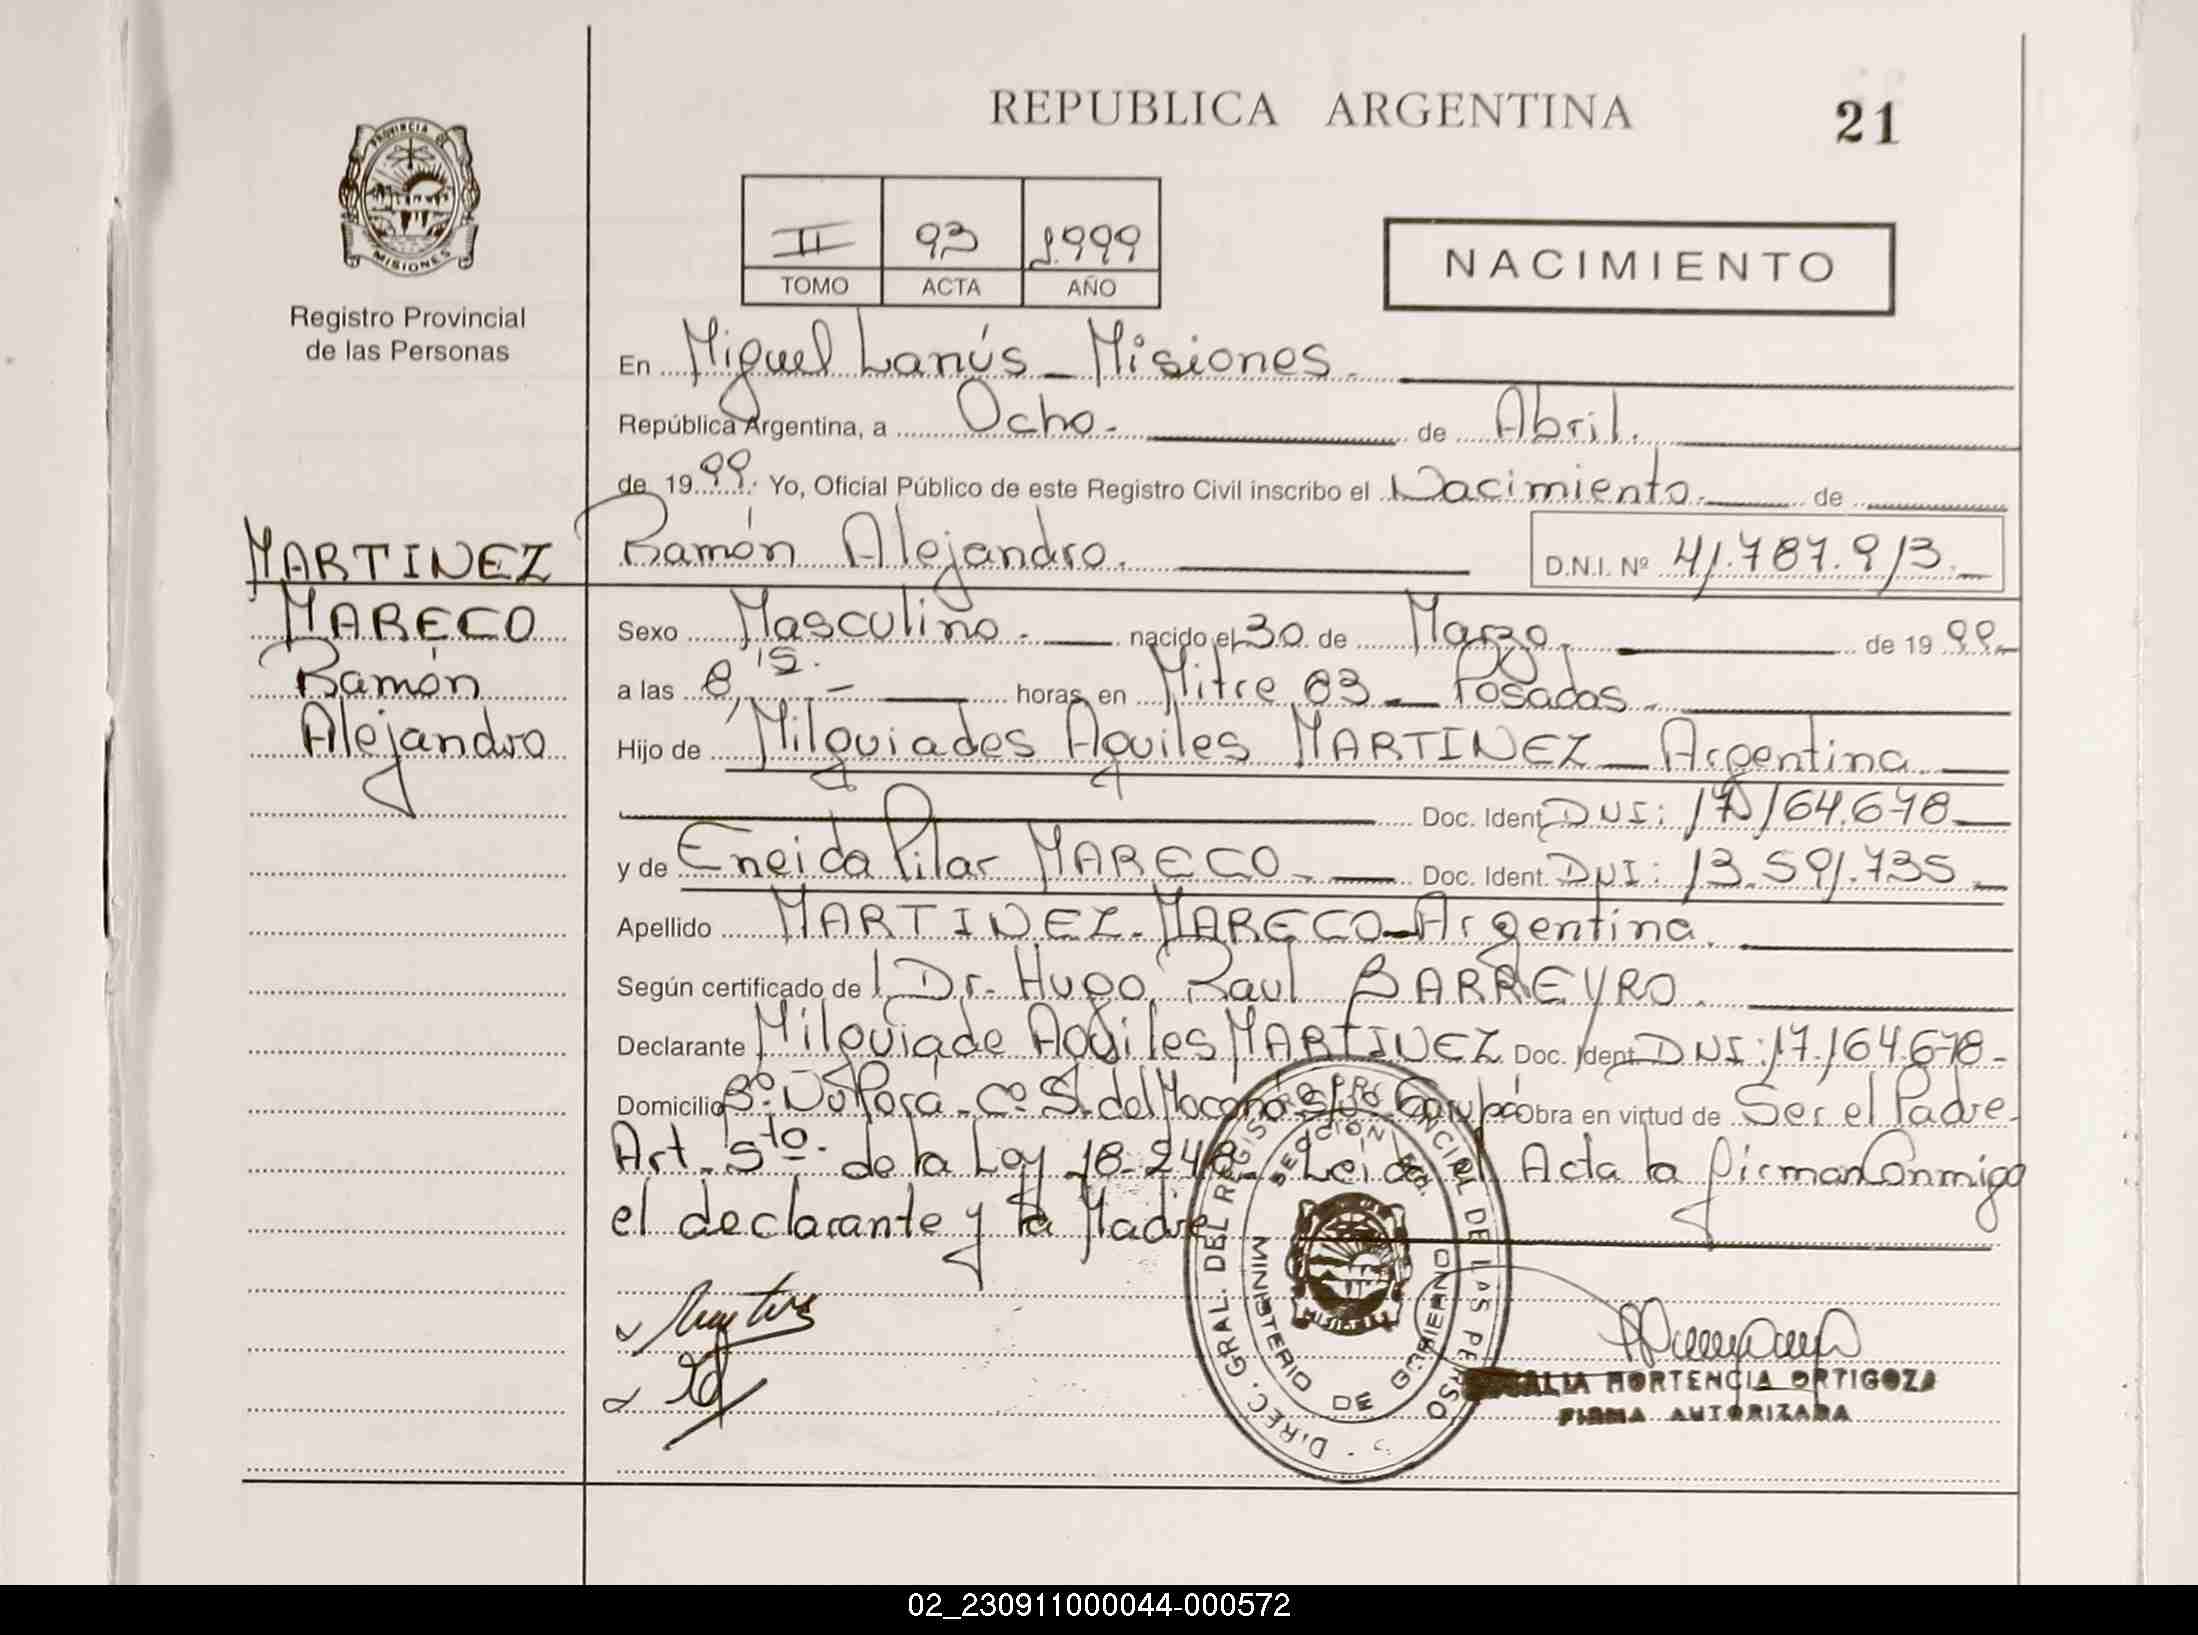 REPUBLICA ARGENTINA
21
PROVINCIA DE
MISIONES
Registro Provincial
de las Personas
II 93 1.999
TOMO ACTA AÑO
NACIMIENTO
En Miguel Lanús - Misiones.
República Argentina, a Ocho. de Abril.
de 1999. Yo, Oficial Público de este Registro Civil inscribo el Nacimiento. de
MARTINEZ
MARECO
Ramón
Alejandro
Ramón Alejandro.
D.N.I. Nº 41.787.913.
Sexo Masculino. nacido el 30 de Marzo de 1999
a las 8,15. horas, en Mitre 83 - Posadas.
Hijo de Milquiades Aquiles MARTINEZ - Argentina.
Doc. Ident. DNI: 17.164.678
y de Eneida Pilar MARECO. Doc. Ident. DNI: 13.591.735
Apellido MARTINEZ - MARECO - Argentina.
Según certificado de l Dr. Hugo Raul BARREYRO.
Declarante Milquiade Aquiles MARTINEZ Doc. Ident. DNI: 17.164.678-
Domicilio Bº: Ñu Porá - Cº S. del Moconá s/nº Garupá Obra en virtud de Ser el Padre.
Art. 5to. de la Ley 18.248. Leida el Acta la firman Conmigo
el declarante y la Madre
DIREC. GRAL. DEL REGISTRO PROVINCIAL DE LAS PERSO
MINISTERIO DE GOBIERNO
MISIONES
HORTENCIA ORTIGOZA
FIRMA AUTORIZADA
02_230911000044-000572